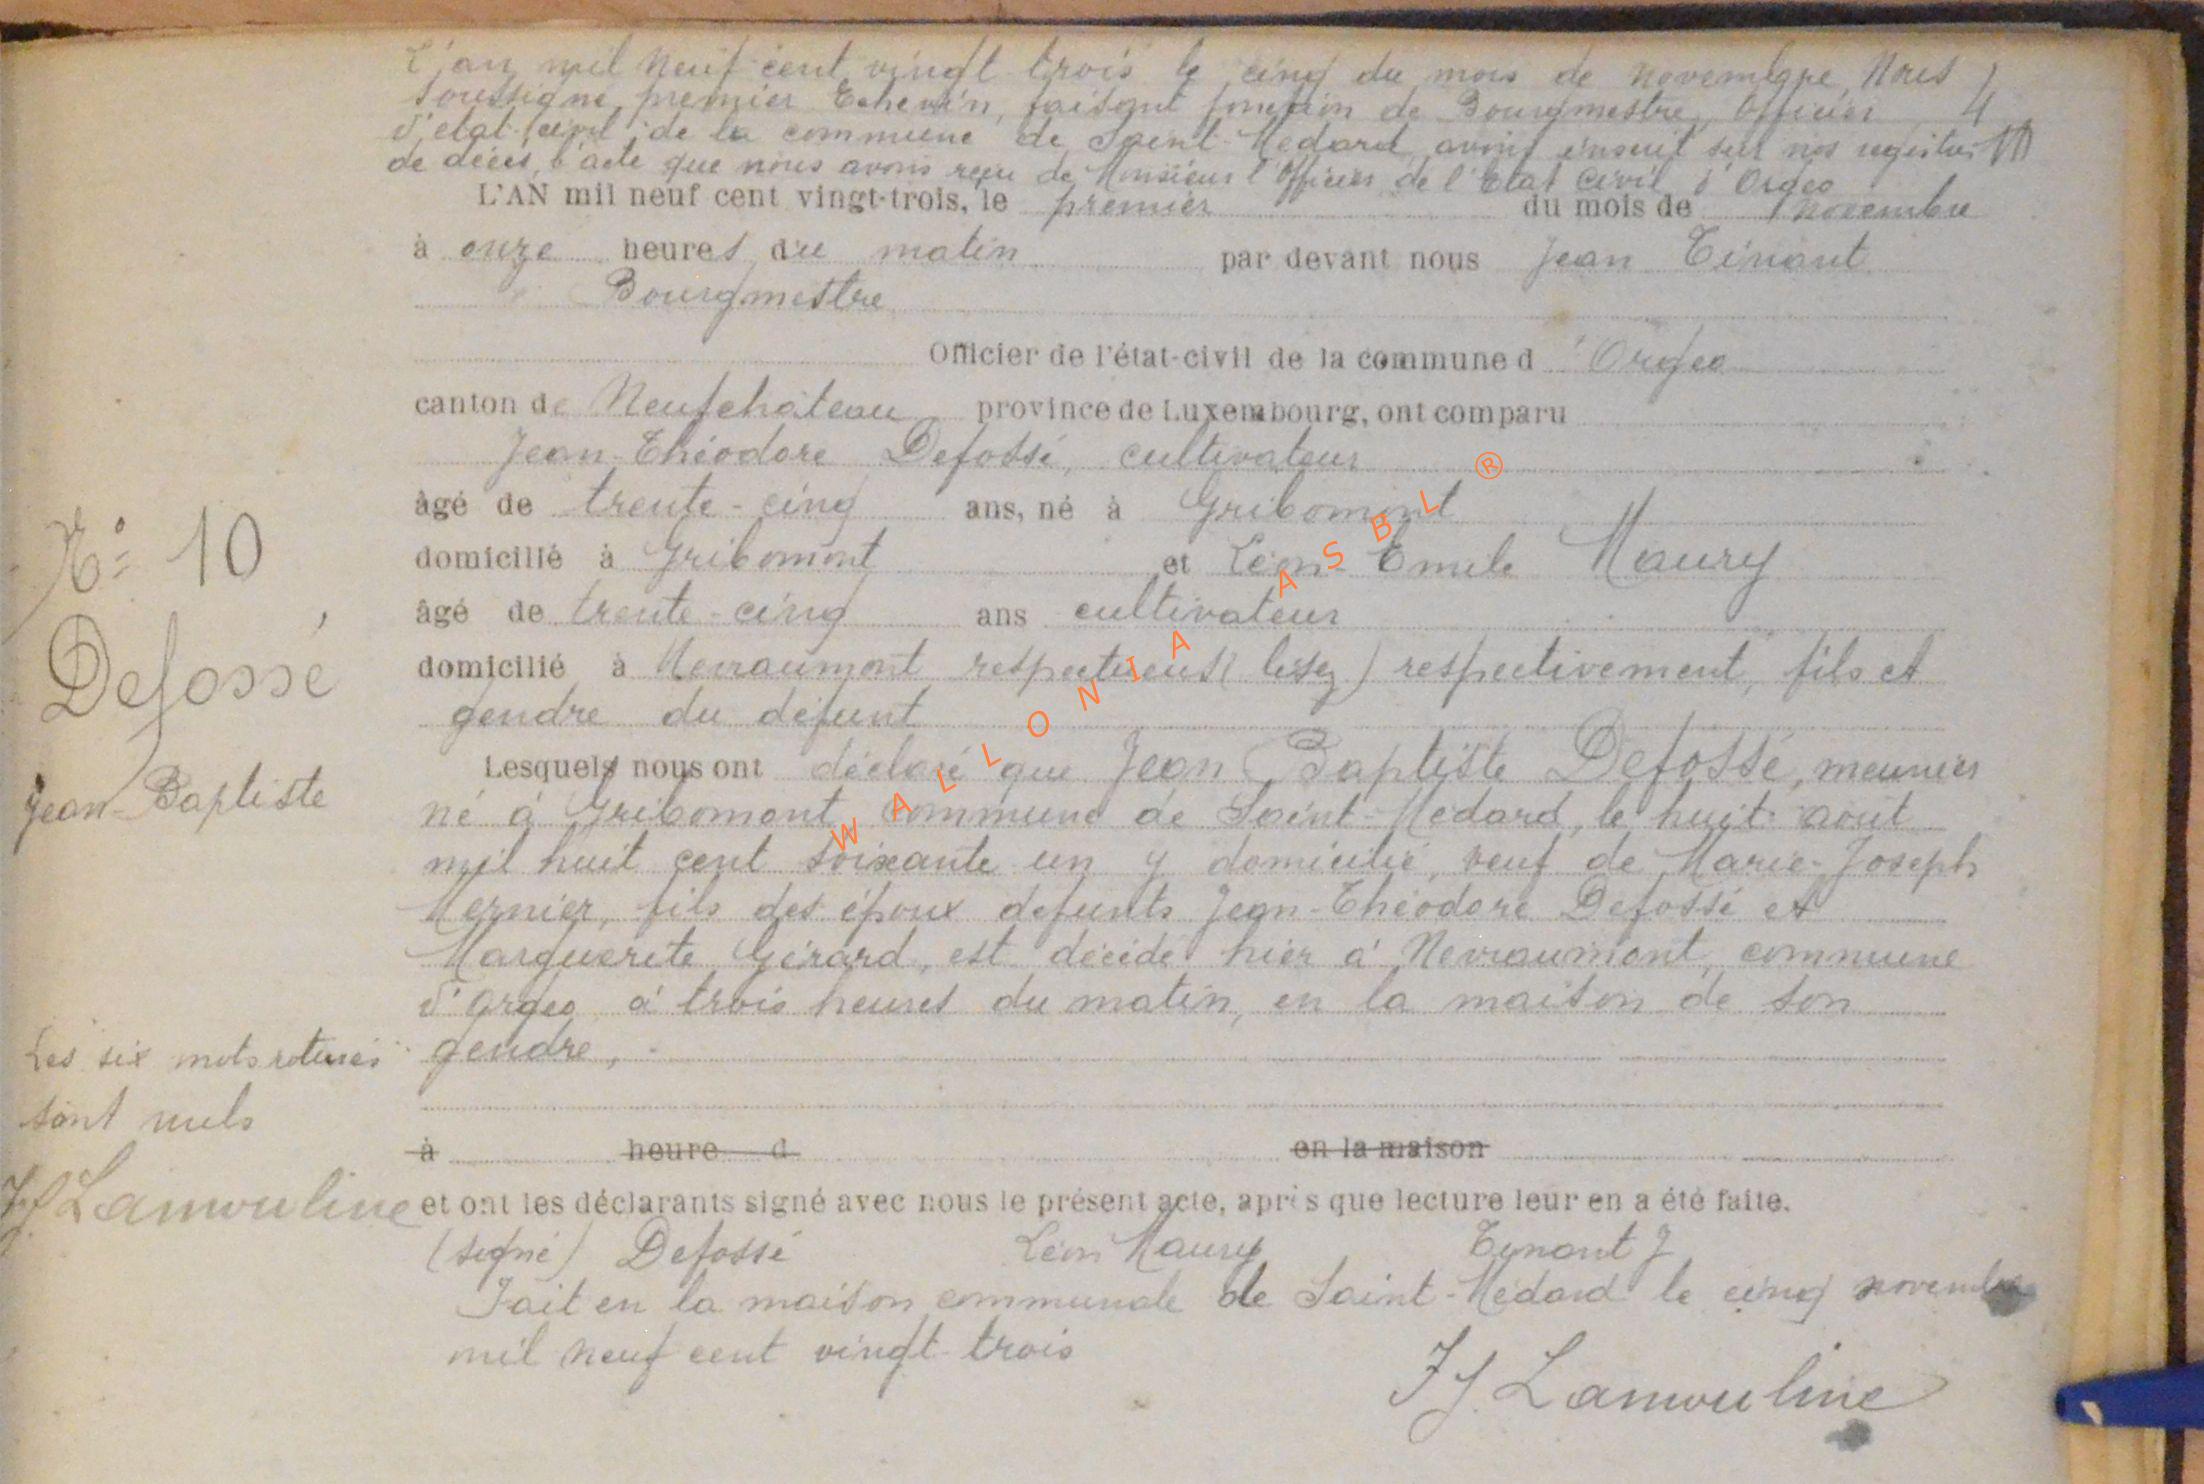 L'an mil neuf cent vingt trois le cinq du mois de novembre, Nous
soussigné, premier Echevin, faisant fonction de Bourgmestre, Officier
d'état-civil de la commune de Saint-Médard, avons inscrit sur nos registres
de décès, l'acte que nous avons reçu de Monsieur l'Officier de l'Etat civil d'Orgeo
L'AN mil neuf cent vingt-trois, le premier du mois de novembre
à onze heures du matin par devant nous Jean Tinant
Bourgmestre
Officier de l'état-civil de la commune d'Orgeo
canton de Neufchâteau province de Luxembourg, ont comparu
Jean-Théodore Defossé, cultivateur
âgé de trente-cinq ans, né à Gribomont
domicilié à Gribomont et Léon-Emile Maury
âgé de trente-cinq ans cultivateur
domicilié à Nevraumont (lisez) respectivement, fils et
gendre du défunt
Lesquels nous ont déclaré que Jean Baptiste Defossé, meunier
né à Gribomont, commune de Saint-Médard, le huit août
mil huit cent soixante un y domicilié, veuf de Marie-Joseph
Mernier, fils des époux défunts Jean-Théodore Defossé et
Marguerite Gérard, est décédé hier à Nevraumont, commune
d'Orgeo, à trois heures du matin, en la maison de son
gendre,
à heure d en la maison
et ont les déclarants signé avec nous le présent acte, après que lecture leur en a été faite.
(signé) Defossé Léon Maury Tinant J
Fait en la maison communale de Saint-Médard le cinq novembre
mil neuf cent vingt-trois
J J Lamouline
N° 10
Defossé
Jean-Baptiste
Les six mots raturés
sont nuls
J J Lamouline
WALLONIA ASBL ®